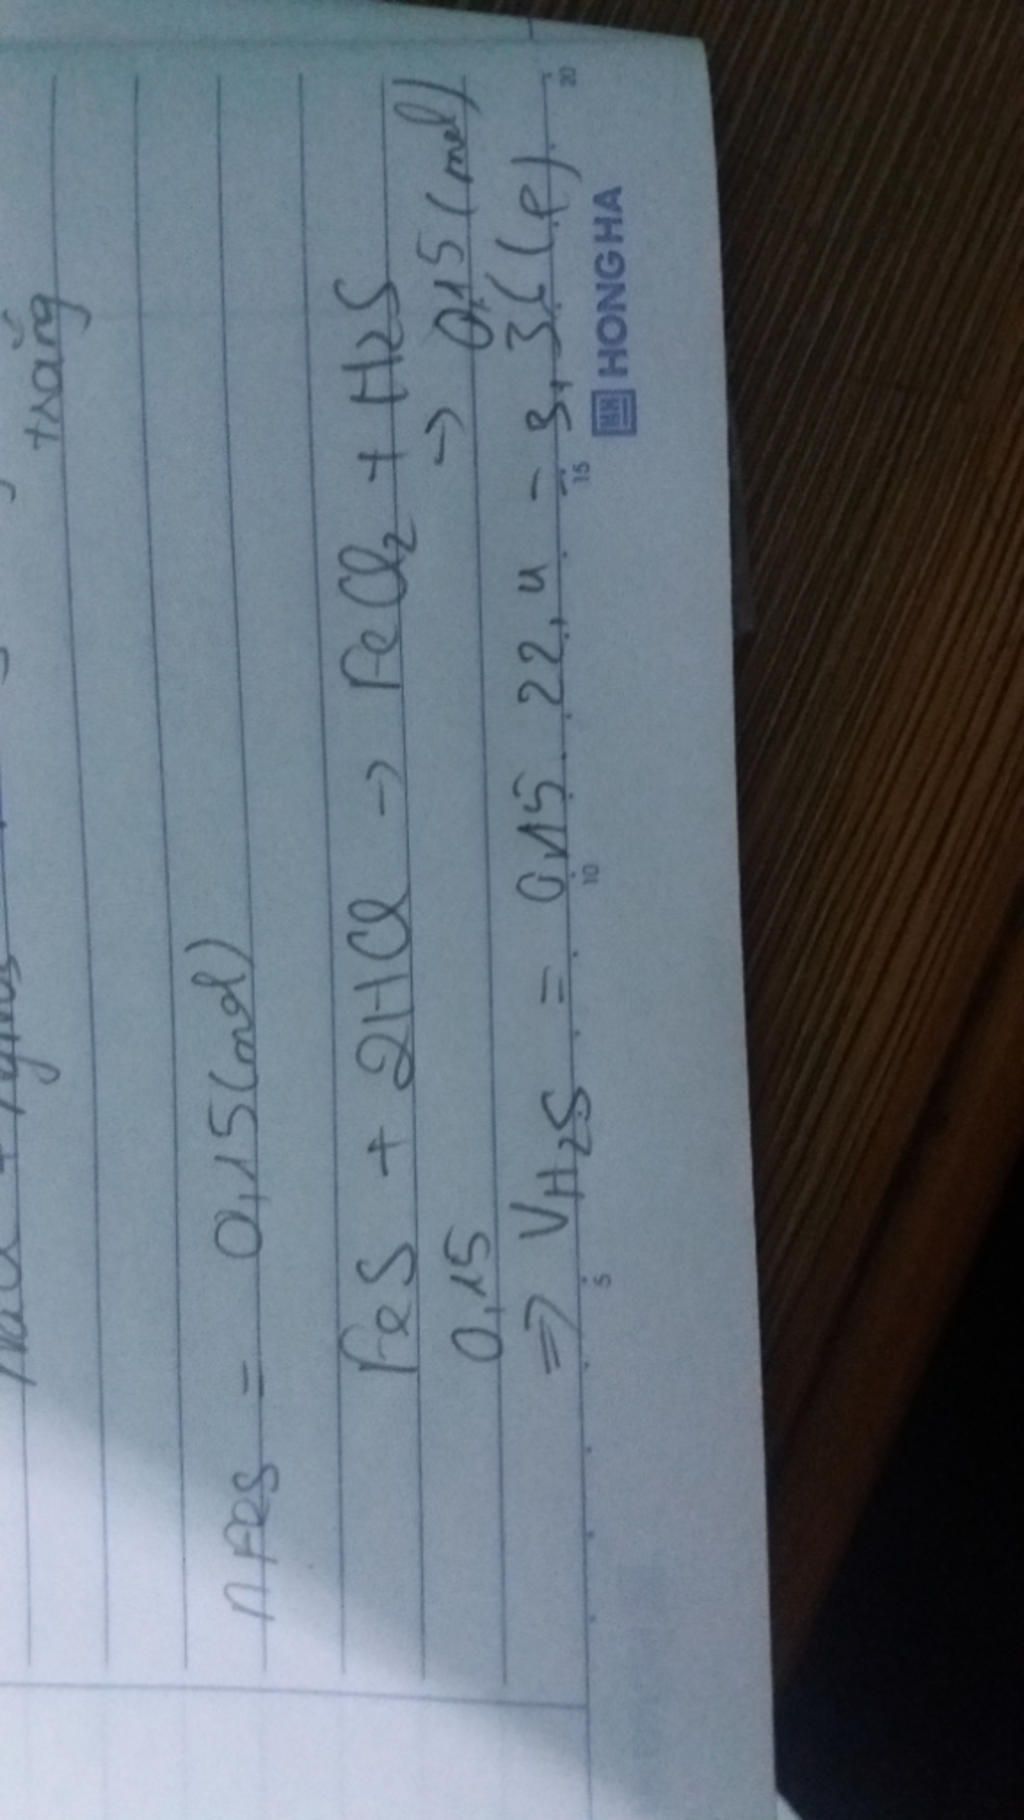 trắng
nFeS = 0,15 (mol)
FeS + 2HCl → FeCl2 + H2S
0,15 → 0,15 (mol)
⇒ VH2S = 0,15 . 22,4 = 3,36 (l)
5 10 15 20
HH HONG HA